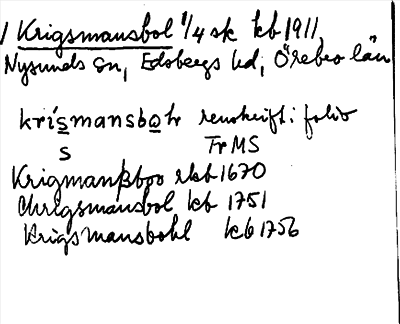 / Krigsmansbol 1/4 sk kb 1911,
Nysunds sn, Edsbergs hd, Örebro län
krísmansbor renskrift i folio
s FrMS
Krigmanßboo rkb 1670
Chrigsmansbol kb 1751
Krigsmansbohl kb 1756